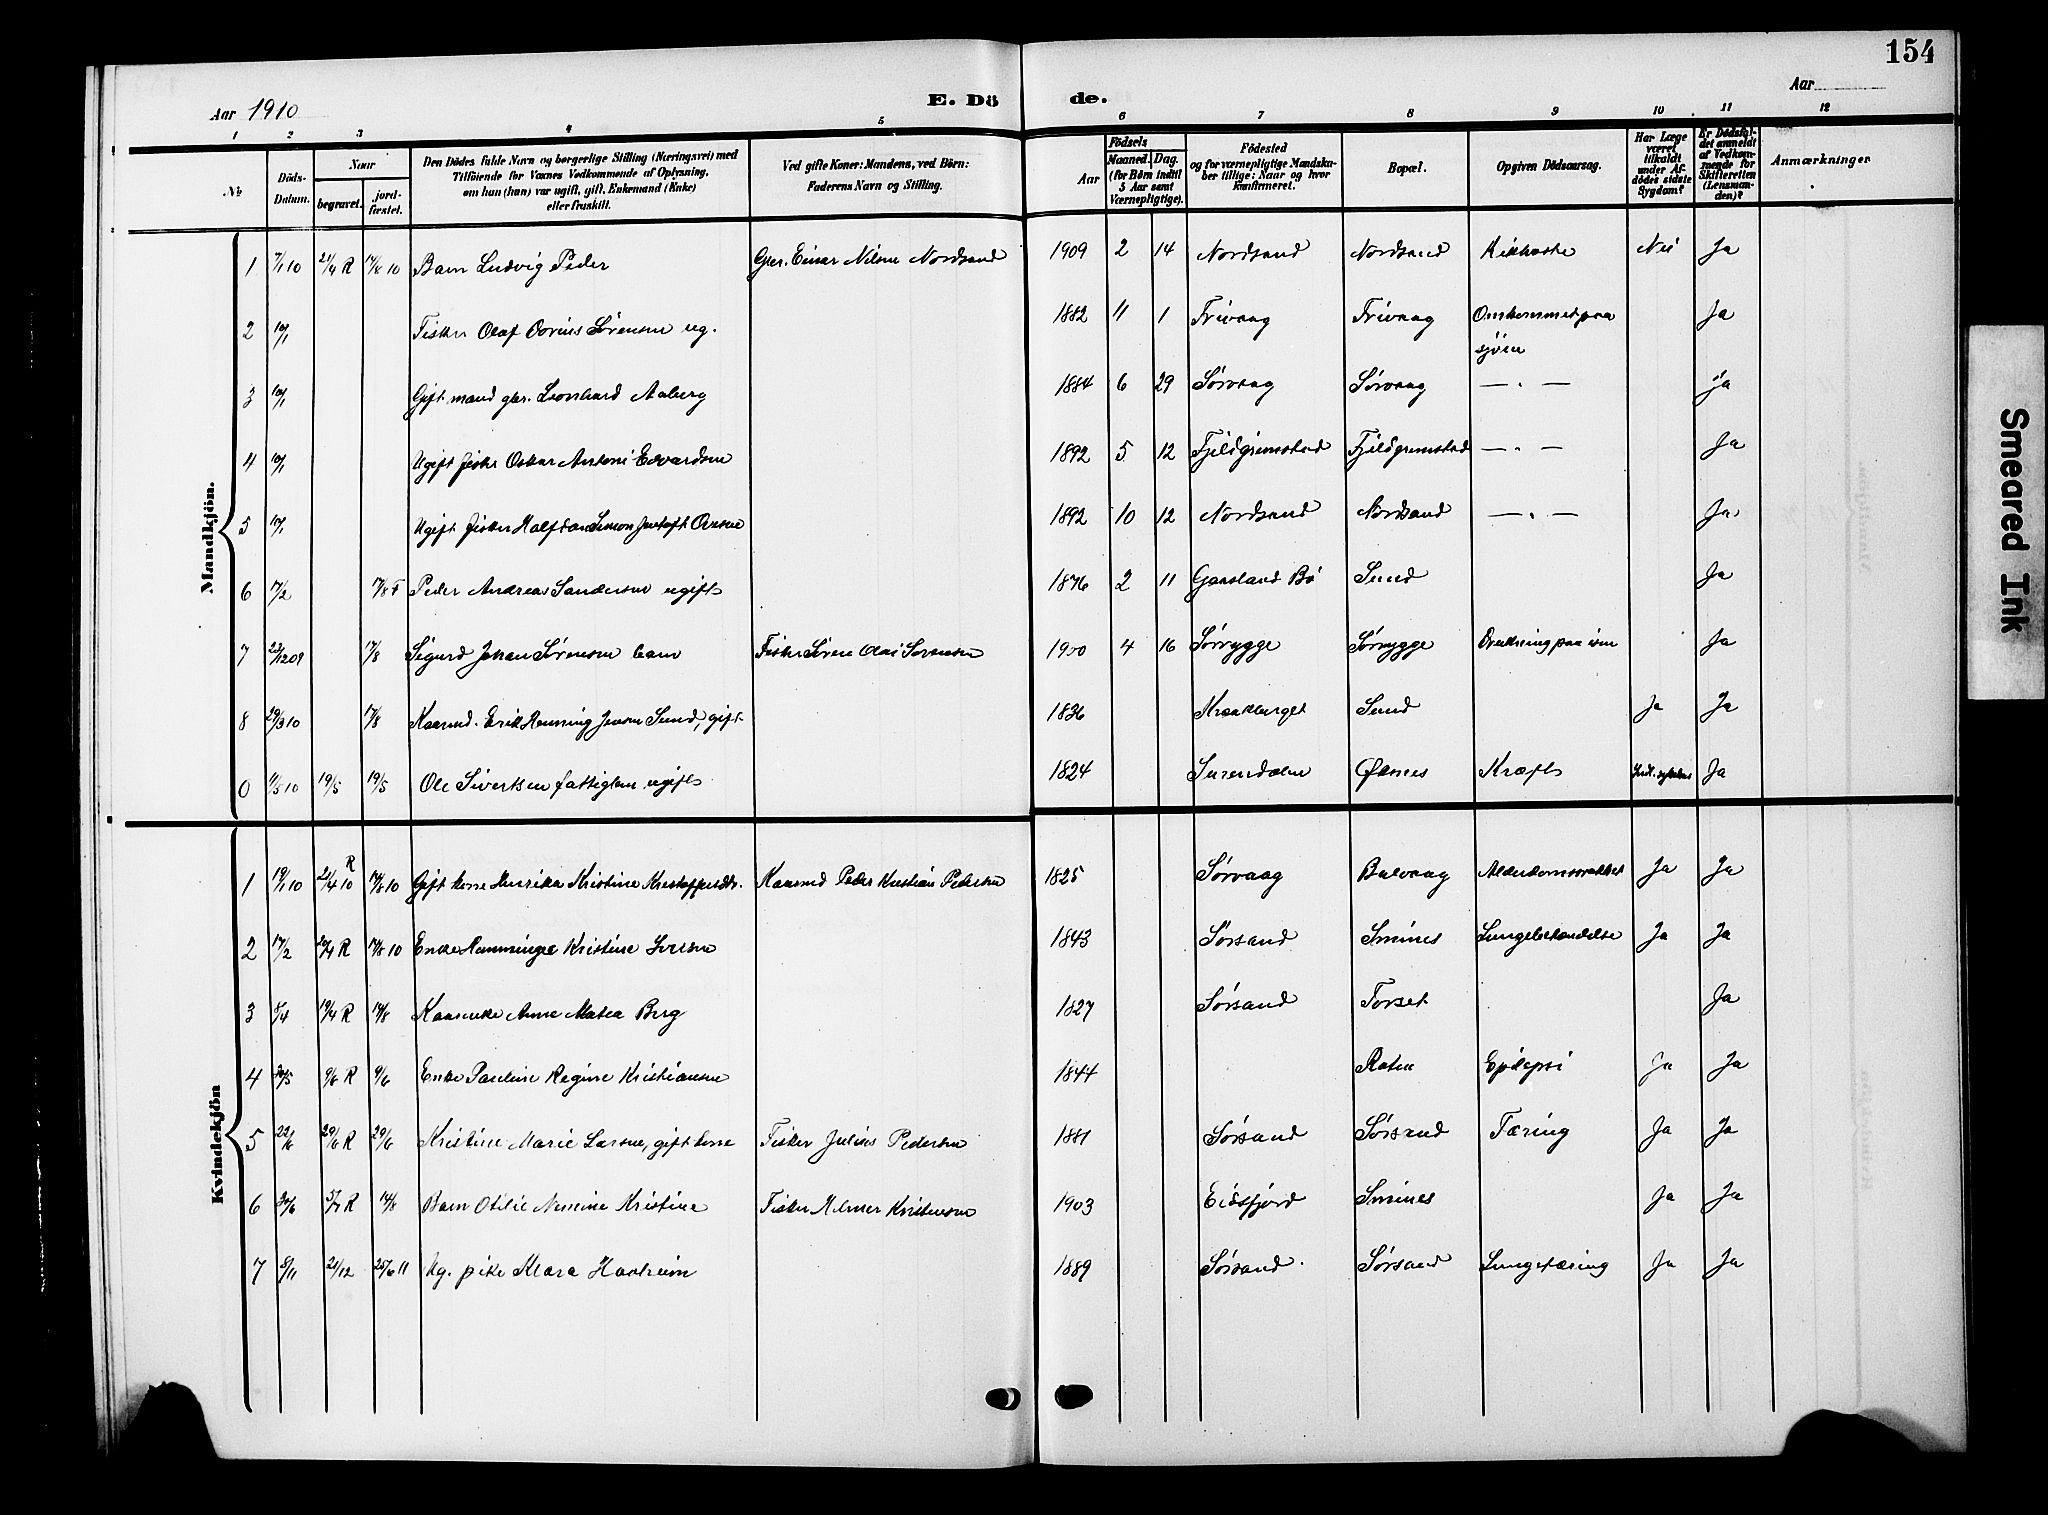 154
Aar 1910
E. Dö
de.
Aar
1 2 3 4 5 6 7 8 9 10 11 12
No
Döds-Datum.
Naar
begravet.
jord-fæstet.
Den Dödes fulde Navn og borgerlige Stilling (Næringsvei) med
Tilföiende for Voxnes Vedkommende af Oplysning,
om hun (han) var ugift, gift, Enkemand (Enke)
eller fraskilt.
Ved gifte Koner: Mandens, ved Börn:
Faderens Navn og Stilling.
Födsels
Aar
Maaned. Dag.
(for Börn indtil
5 Aar samt
Værnepligtige).
Födested
og for værnepligtige Mandska-
ber tillige: Naar og hvor
konfirmeret.
Bopæl.
Opgiven Dödsaarsag.
Har Læge
været
tilkaldt
under Af-
dödes sidste
Sygdom?
Er Dödsfal-
det anmeldt
af Vedkom-
mende for
Skifteretten
(Lensman-
den)?
Anmærkninger
Mandkjön.
1 7/1 10 21/4 R 17/8 10 Barn Ludvig Peder Gbr. Einar Nilsen Nordsand 1909 2 14 Nordsand Nordsand Kikhoste Nei Ja
2 10/1 Fisker Olaf Sørensen ug. 1882 11 1 Frivaag Frivaag Omkommet paa
sjøen Ja
3 10/1 Gift mand gbr. Leonhard Aaberg 1884 6 29 Sørvaag Sørvaag — " — Ja
4 10/1 Ugift fisker Oskar Antoni Edvardsen 1892 5 12 Fjeldgrimstad Fjeldgrimstad — " — Ja
5 10/1 Ugift fisker Halfdan Simon 1892 10 12 Nordsand Nordsand — " — Ja
6 17/2 17/8 F Peder Andreas Sandersen ugift 1876 2 11 Gaasland Bø Sund Ja
7 23/12 09 17/8 Sigurd Johan Sørensen barn Fisker Søren Olai Sørensen 1900 4 16 Sørrygge Sørrygge Drukning paa isen Ja
8 29/3 10 17/8 Kaarmd. Erik Henning Jensen Sund, gift 1836 Kraakberget Sund Ja Ja
0 11/5 10 19/5 19/5 Ole Sivertsen fattiglem ugift 1824 Surendalen Øksnes Kræft Ja
Kvindekjön
1 19/1 10 21/4 10 R 17/8 10 Gift kone Henrika Kristine Kristoffersdtr. Kaarmd Peder Kristian Pedersen 1825 Sørvaag Bulvaag Alderdomssvakhet Ja Ja
2 17/2 20/4 R 17/8 10 Enke Hemmingse Kristine Iversen 1843 Sørsand Smines Lungebetændelse Ja Ja
3 8/4 19/4 R 14/8 Kaarenke Anne Matea Berg 1827 Sørsand Torset Ja
4 20/5 9/6 R 9/6 Enke Pauline Regine Kristiansen 1844 Roten Epilepsi Ja Ja
5 22/6 29/6 R 29/6 Kristine Marie Larsen, gift kone Fisker Julius Pedersen 1881 Sørsand Sørsand Tæring Ja Ja
6 30/6 5/7 R 14/8 Barn Otilie Nimine Kristine Fisker Hilmer Kristensen 1903 Eidsfjord Smines Ja Ja
7 8/11 21/12 25/6 11 Ug. pike Klara Haaheim 1889 Sørsand Sørsand Lungetæring Ja Ja
Smeared Ink